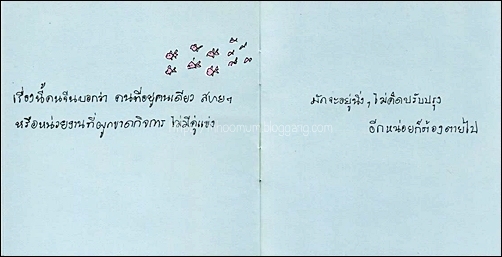 เรื่องนี้คนจีนบอกว่า คนที่อยู่คนเดียว สบายๆ
หรือหน่วยงานที่ผูกขาดกิจการ ไม่มีคู่แข่ง
มักจะอยู่นิ่งๆ ไม่คิดปรับปรุง
อีกหน่อยก็ต้องตายไป